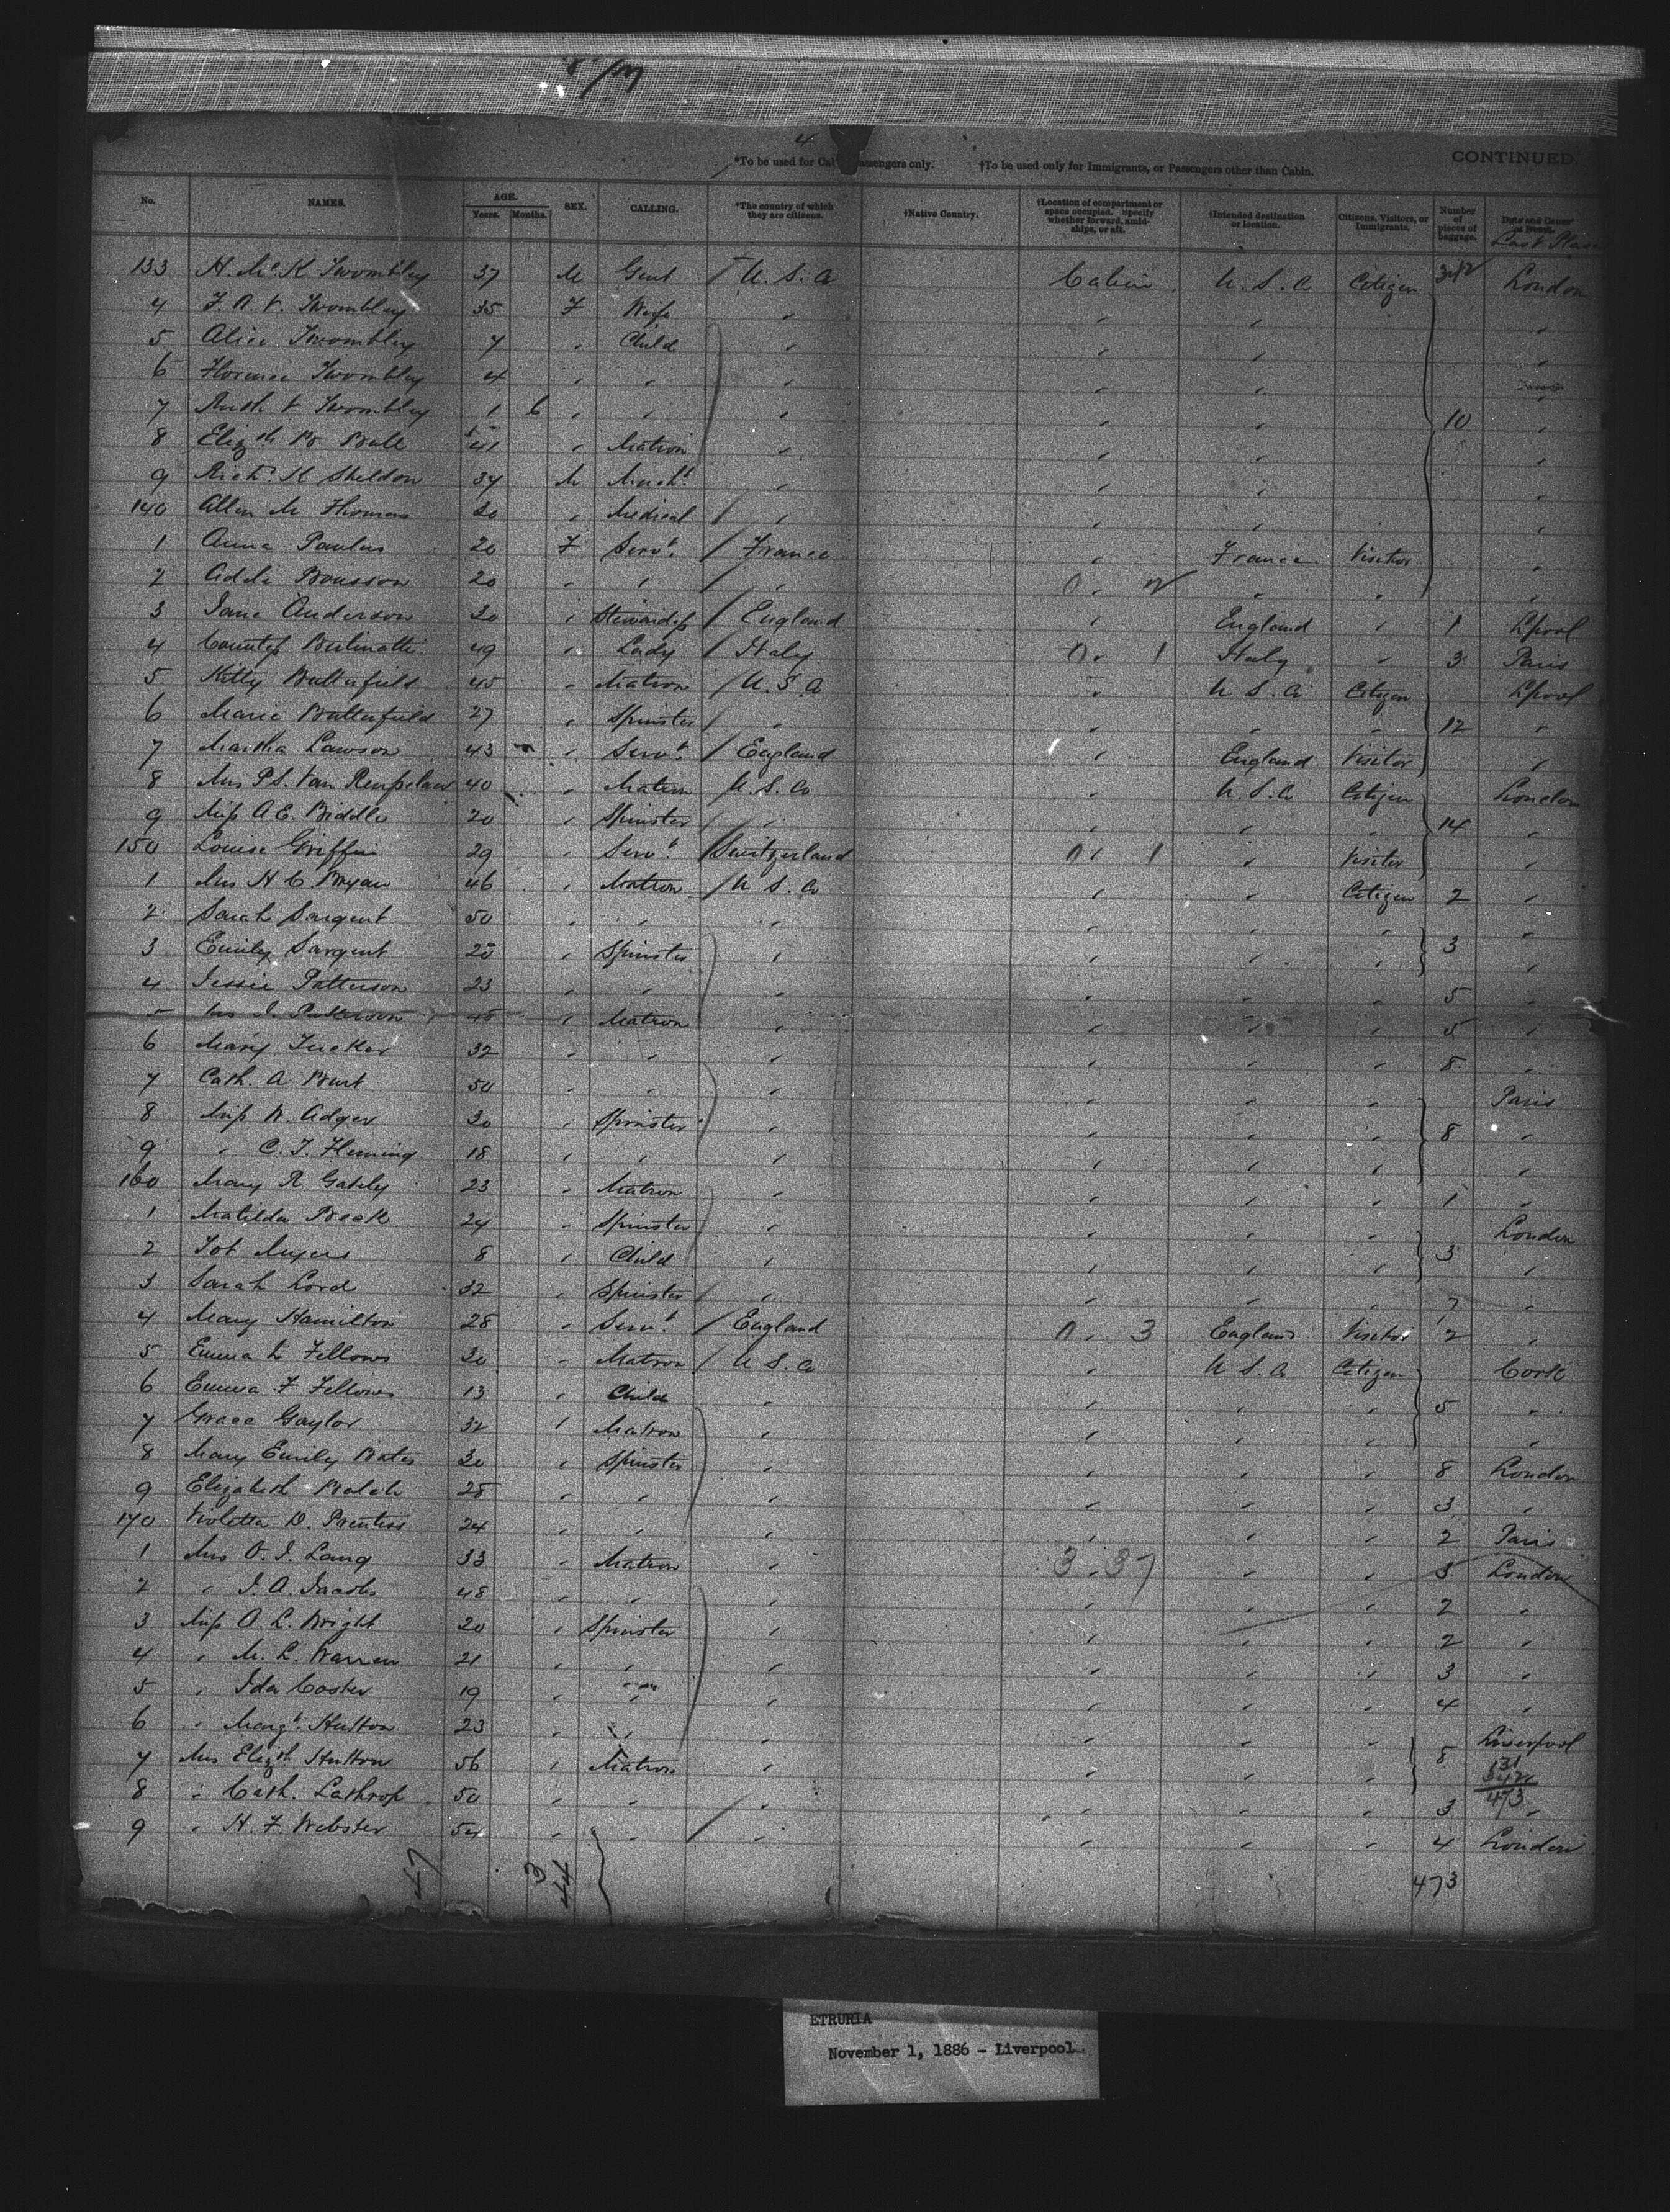 4
*To be used for Cab Passengers only. †To be used only for Immigrants, or Passengers other than Cabin. CONTINUED.
No. NAMES. AGE. Years. Months. SEX. CALLING. *The country of which they are citizens. †Native Country. †Location of compartment or space occupied. Specify whether forward, amidships, or aft. †Intended destination or location. Citizens, Visitors, or Immigrants. Number of pieces of baggage. Date and Cause of Death.
133 H. McK Twombly 37 M Gent U.S.A Cabin U.S.A Citizen 342 London
4 F. A. V. Twombley 35 F Wife " " " "
5 Alice Twombley 7 " Child " " " "
6 Florence Twombley 4 " " " " "
7 Ruth V Twombley 1 6 " " " " " 10 "
8 Elizth B Bull 41 " Matron " " " "
9 Richd K Sheldon 34 M Mercht " " " "
140 Allen M Thomas 30 " Medical " " " "
1 Anna Paulus 20 F Servt France " France Visitor "
2 Adele Bousson 20 " " " 0 2 " " "
3 Jane Anderson 30 " Stewardess England " England " 1 Lpool
4 Countess Bertinatti 49 " Lady Italy 0 1 Italy " 3 Paris
5 Kitty Butterfield 45 " Matron U.S.A " U.S.A Citizen Lpool
6 Marie Butterfield 27 " Spinster " " " " 12 "
7 Martha Lawson 43 " Servt England " England Visitor "
8 Mrs P.S. Van Rensselaer 40 " Matron U.S.A " U.S.A Citizen London
9 Miss A E. Biddle 20 " Spinster " " " " 14 "
150 Louise Griffin 29 " Servt Switzerland 0 1 " Visitor "
1 Mrs H C Bryan 46 " Matron U S. A " " Citizen 2 "
2 Sarah Sargent 50 " " " " " " "
3 Emily Sargent 25 " Spinster " " " " 3 "
4 Jessie Patterson 23 " " " " " " 5 "
5 Mrs J. Patterson 45 " Matron " " " " 5 "
6 Mary Tucker 32 " " " " " " 8 "
7 Cath. A Burt 50 " " " " " " Paris
8 Miss W. Adger 30 " Spinster " " " " 8 "
9 " C. T. Fleming 18 " " " " " " "
160 Mary R Gately 23 " Matron " " " " 1 "
1 Matilda Beak 24 " Spinster " " " " London
2 Tot Myers 8 " Child " " " " 3 "
3 Sarah Lord 32 " Spinster " " " " 7 "
4 Mary Hamilton 28 " Servt England 0 3 England Visitor 2 "
5 Emma L Fellows 30 " Matron U S. A " U S. A Citizen Cork
6 Emma F Fellows 13 " Child " " " " 5 "
7 Grace Gaylor 32 " Matron " " " " "
8 Mary Emily Bates 30 " Spinster " " " " 8 London
9 Elizabeth Balch 28 " " " " " " 3 "
170 Violetta D. Prentiss 24 " " " " " " 2 Paris
1 Mrs O. J. Lang 33 " Matron " 3 37 " " 5 London
2 " J. A. Jacobs 48 " " " " " " 2 "
3 Miss A. L. Wright 20 " Spinster " " " " 2 "
4 " M. L. Warren 21 " " " " " " 3 "
5 " Ida Coster 19 " " " " " " 4 "
6 " Margt Hutton 23 " " " " " " Liverpool
7 Mrs Elizth Hutton 56 " Matron " " " " 8
131
342
473
8 " Cath. Lathrop 50 " " " " " " 3 "
9 " H. F. Webster 54 " " " " " " 4 London
47 3 44 473
ETRURIA
November 1, 1886 - Liverpool